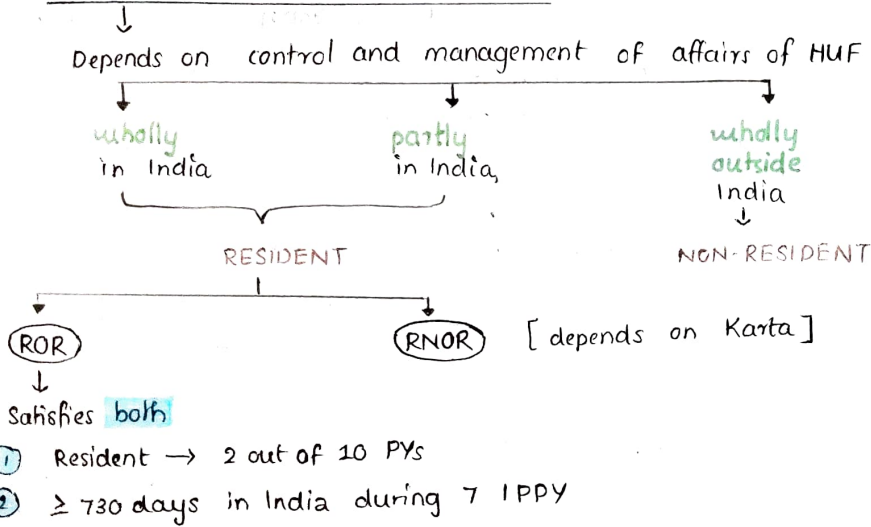 Depends on control and management of affairs of HUF
wholly partly wholly
in India in India, outside
India
RESIDENT NON-RESIDENT
ROR RNOR [depends on Karta]
Satisfies both
1 Resident → 2 out of 10 PYs
2 ≥ 730 days in India during 7 IPPY